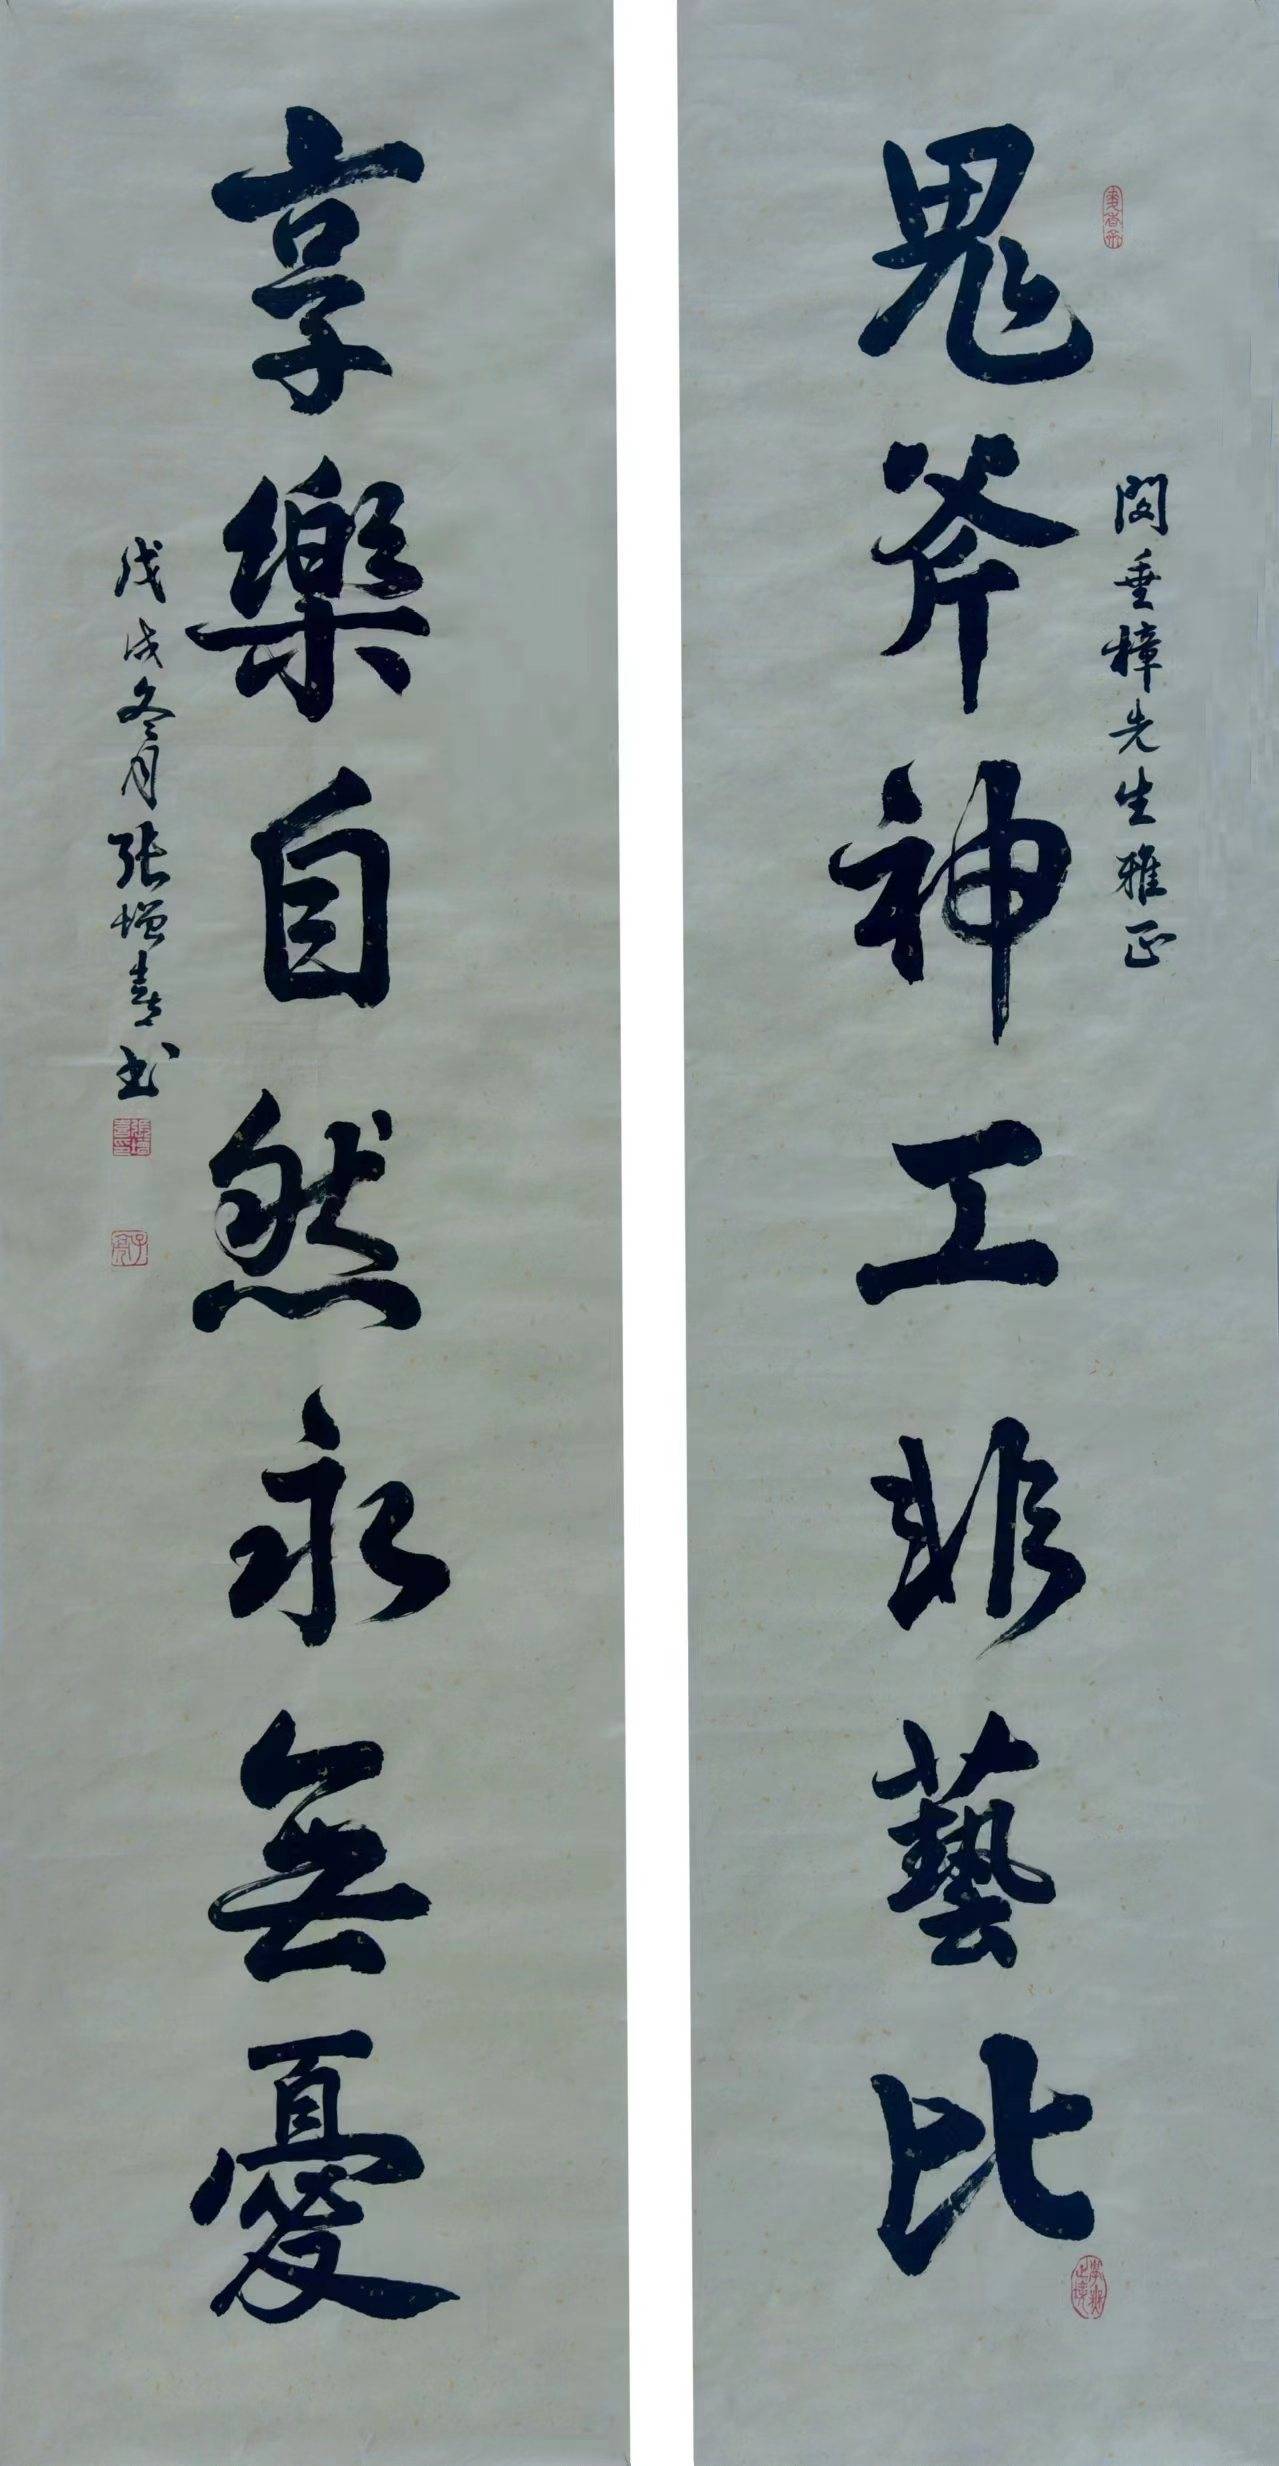 鬼斧神工非藝比
閔垂樟先生雅正
享樂自然永無憂
戊戌冬月張增喜书